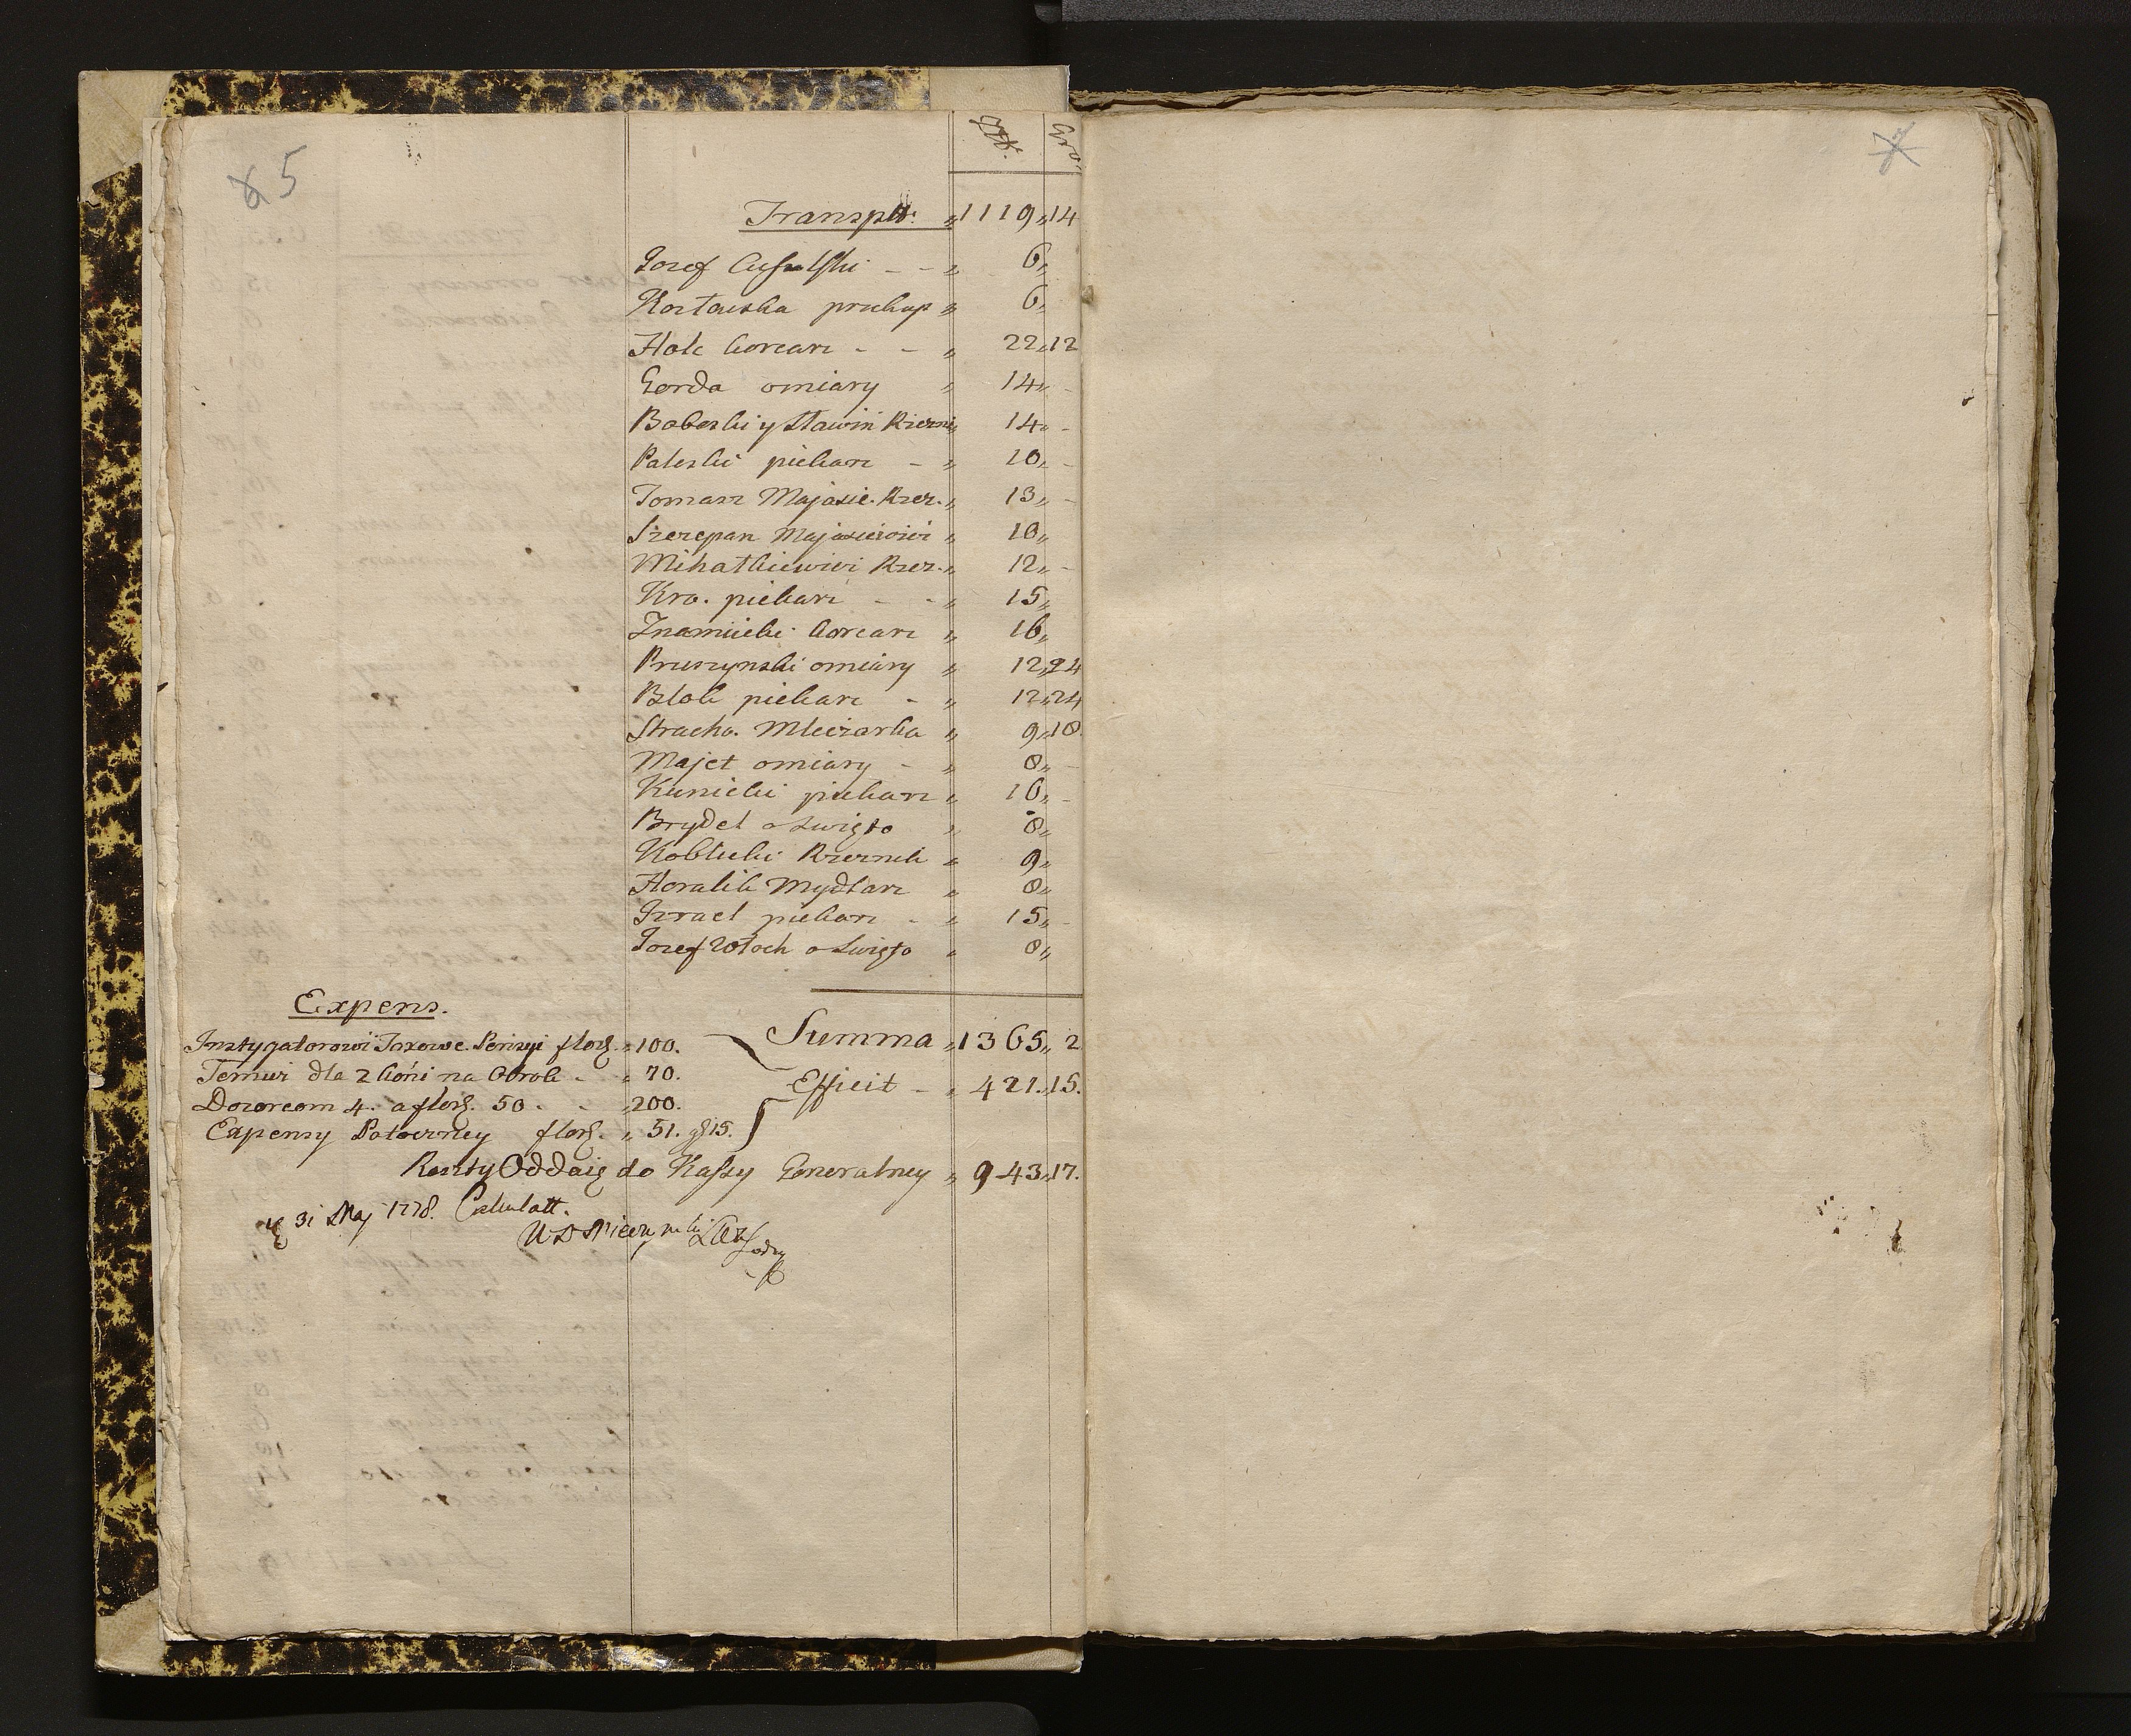 5
Gro.
Transptt. „ 1119 „ 14
Jozef - - „ 6 „
prekup „ 6 „
Hole korcarz - - „ 22 „ 12
Gorda omiary „ 14 „ -
Boberski y Stawin Rzezni „ 14 „ -
Paleski piekarz - „ 10 „ -
Tomasz Majasie. Rzez. „ 13 „ -
Szczepan Majasiewicz „ 10 „
Mihałkiewicz Rzez. „ 12 „ -
Kra. piekarz - - „ 15 „
Znamiicki korcarz „ 16 „
Pruszynski omiary „ 12 „ 24
Blok piekarz - „ 12 „ 24
Stracho. Mleczarka „ 9 „ 18.
Majet omiary - „ 8 „ -
Kunicki piekarz „ 16 „ -
Brydel o Swięto „ 8 „
Kobłucki Rzeznik „ 9 „
Horalik Mydlarz „ 8 „
Izrael piekarz - „ 15 „ -
Jozef Włoch o Swięto „ 8 „
Expens.
Instygatorowi Taxowe. Pensyi florę. „ 100.
Temuz dla 2 koni na Obrok - „ 70.
Dozorcom 4. a florę. 50 - - „ 200.
Expensy Potoczney florę. „ 51. gř 15.
Summa „ 1365 „ 2
Efficit - „ 421. „ 15.
Reszty Oddaię do Kassy Generalney „ 943 „ 17.
31 Maj 1778. Calculatt.